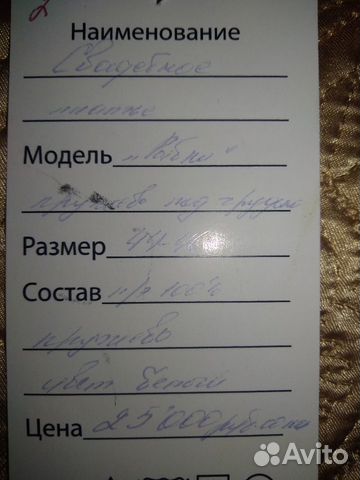 2
Наименование
Свадебное
платье
Модель
кружево под грудью
Размер 44-
Состав п/э 100%
кружево
цвет белый
Цена 25'000 руб.
Avito